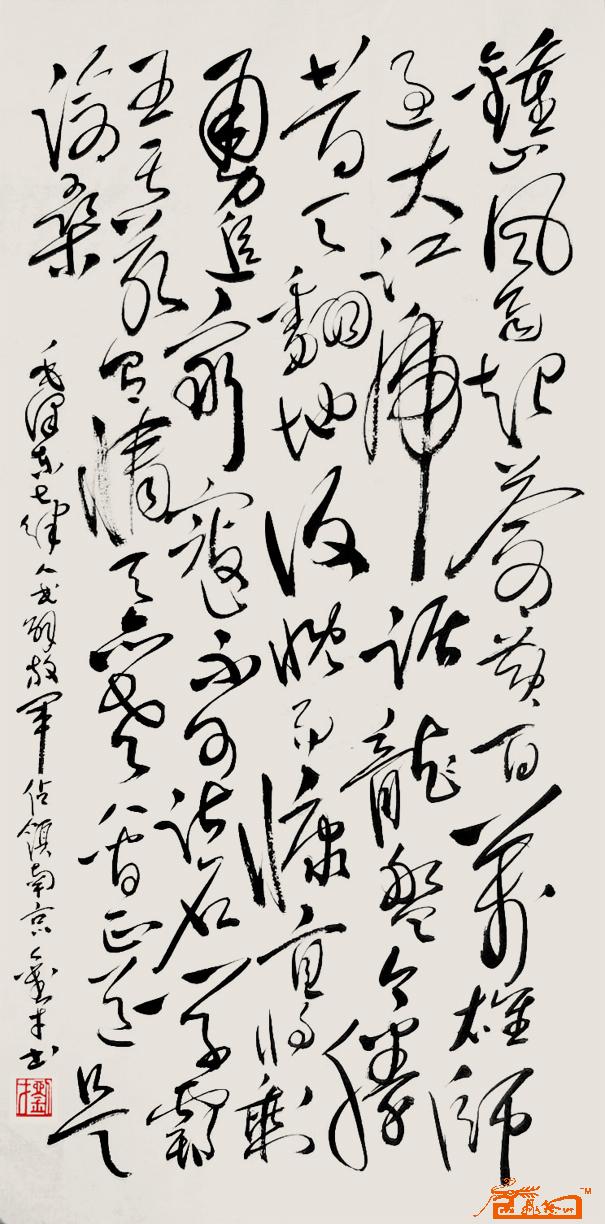 鍾山风雨起蒼黄百萬雄师
过大江虎踞龍盘今勝
昔天翻地覆慨而慷宜将剩
勇追窮寇不可沽名学霸
王天若有情天亦老人间正道是
沧桑
毛泽东七律人民解放军佔领南京